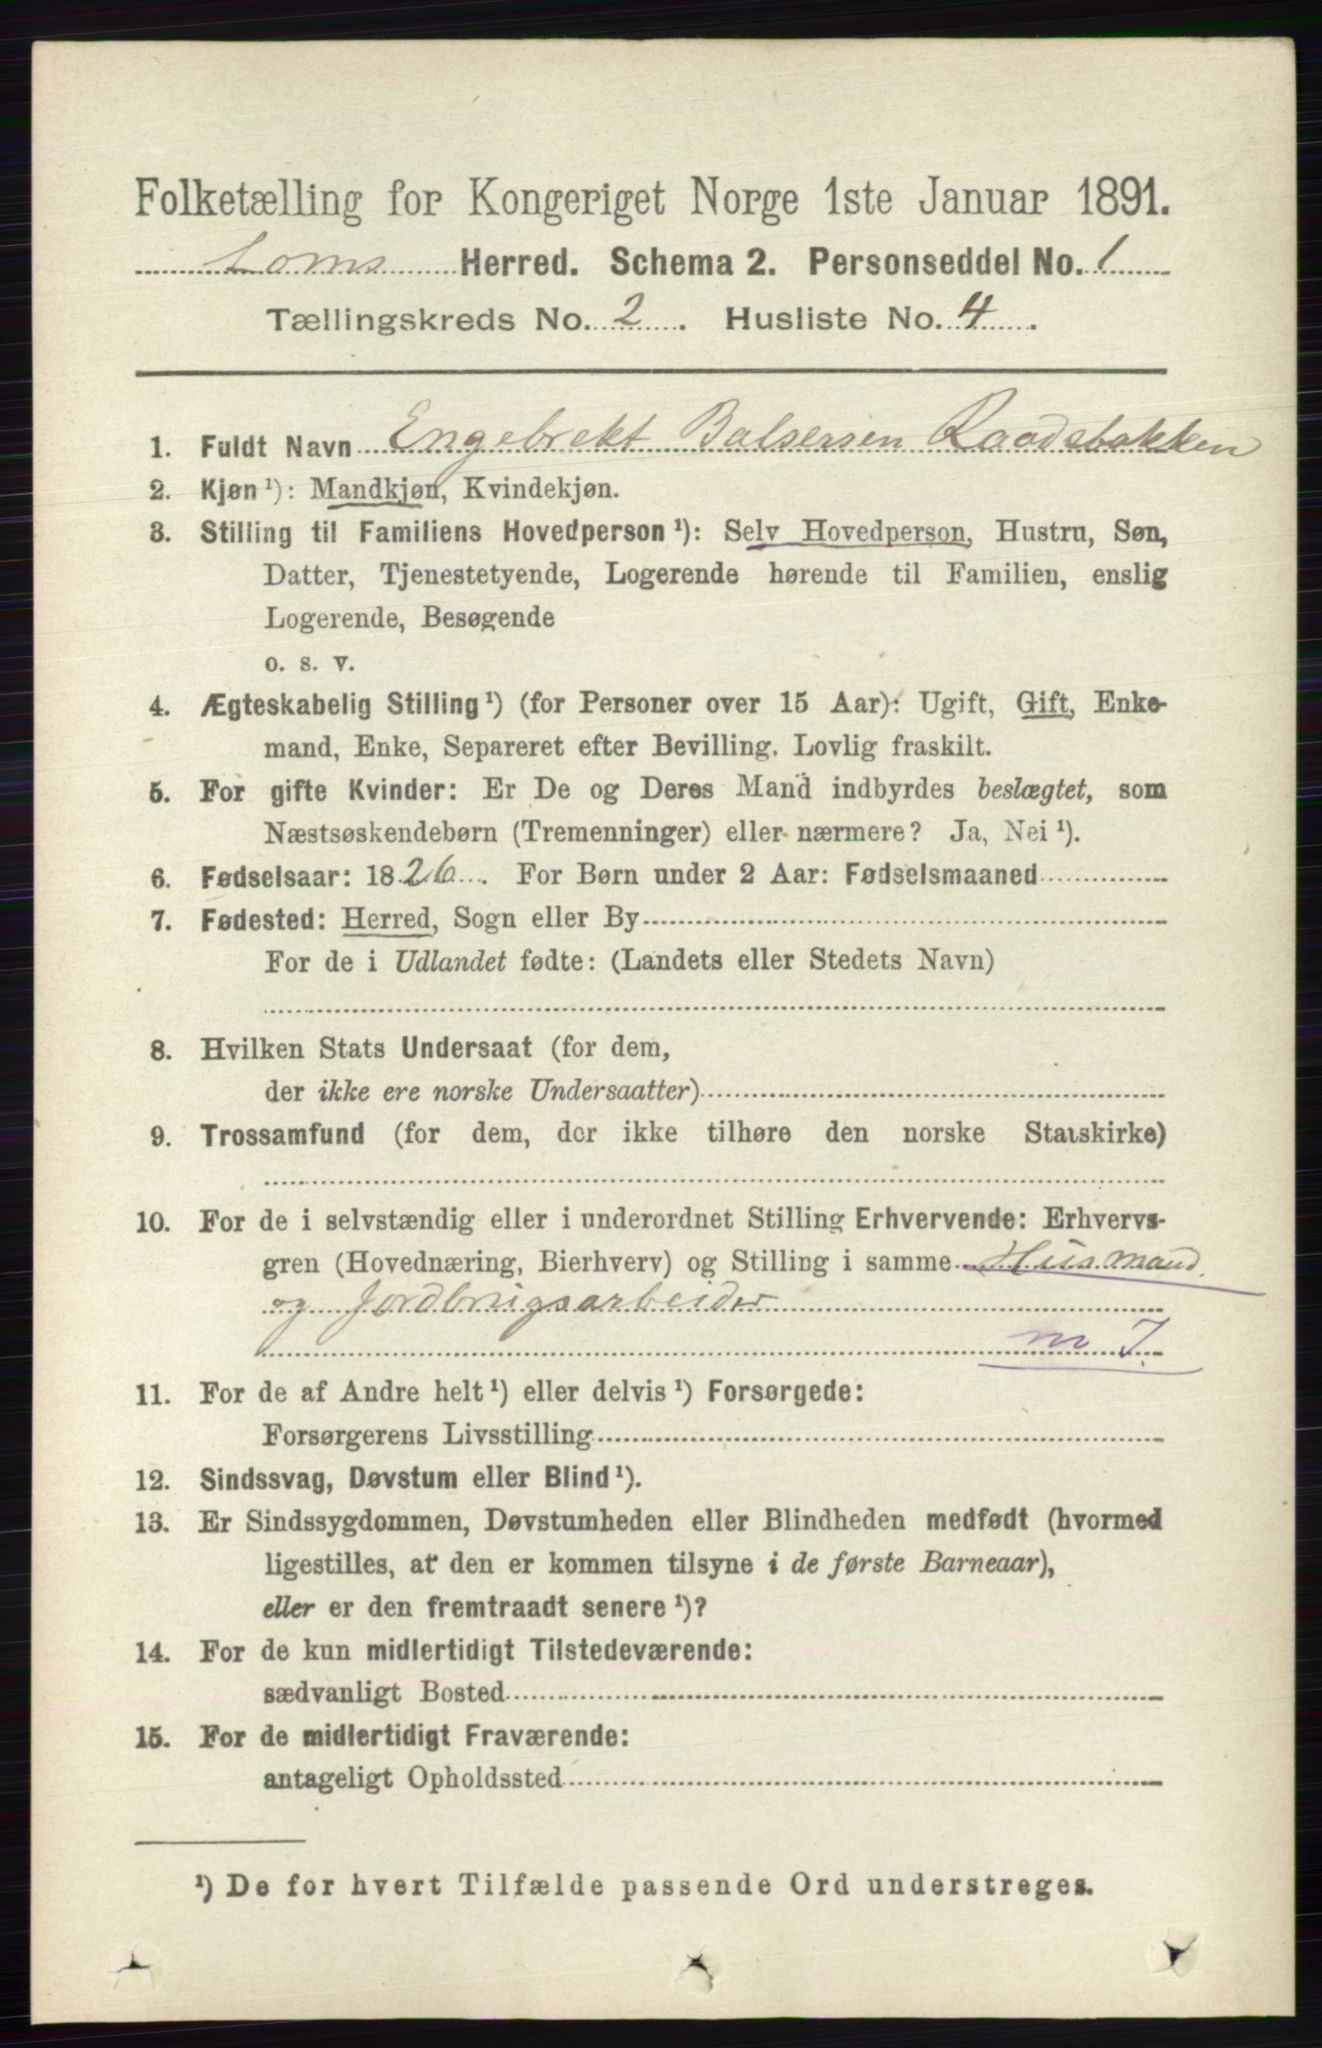 Folketælling for Kongeriget Norge 1ste Januar 1891.
Loms Herred. Schema 2. Personseddel No. 1
Tællingskreds No. 2. Husliste No. 4.
1. Fuldt Navn Engebrekt Balsersen Raadsbakken
2. Kjøn ¹): Mandkjøn, Kvindekjøn.
3. Stilling til Familiens Hovedperson ¹): Selv Hovedperson, Hustru, Søn,
Datter, Tjenestetyende, Logerende hørende til Familien, enslig
Logerende, Besøgende
o. s. v.
4. Ægteskabelig Stilling ¹) (for Personer over 15 Aar): Ugift, Gift, Enke-
mand, Enke, Separeret efter Bevilling. Lovlig fraskilt.
5. For gifte Kvinder: Er De og Deres Mand indbyrdes beslægtet, som
Næstsøskendebørn (Tremenninger) eller nærmere? Ja, Nei ¹).
6. Fødselsaar: 1826. For Børn under 2 Aar: Fødselsmaaned
7. Fødested: Herred, Sogn eller By
For de i Udlandet fødte: (Landets eller Stedets Navn)
8. Hvilken Stats Undersaat (for dem,
der ikke ere norske Undersaatter)
9. Trossamfund (for dem, der ikke tilhøre den norske Statskirke)
10. For de i selvstændig eller i underordnet Stilling Erhvervende: Erhvervs-
gren (Hovednæring, Bierhverv) og Stilling i samme Husmand
og Jordbrugsarbeider
m J.
11. For de af Andre helt ¹) eller delvis ¹) Forsørgede:
Forsørgerens Livsstilling
12. Sindssvag, Døvstum eller Blind ¹).
13. Er Sindssygdommen, Døvstumheden eller Blindheden medfødt (hvormed
ligestilles, at den er kommen tilsyne i de første Barneaar),
eller er den fremtraadt senere ¹)?
14. For de kun midlertidigt Tilstedeværende:
sædvanligt Bosted
15. For de midlertidigt Fraværende:
antageligt Opholdssted
¹) De for hvert Tilfælde passende Ord understreges.